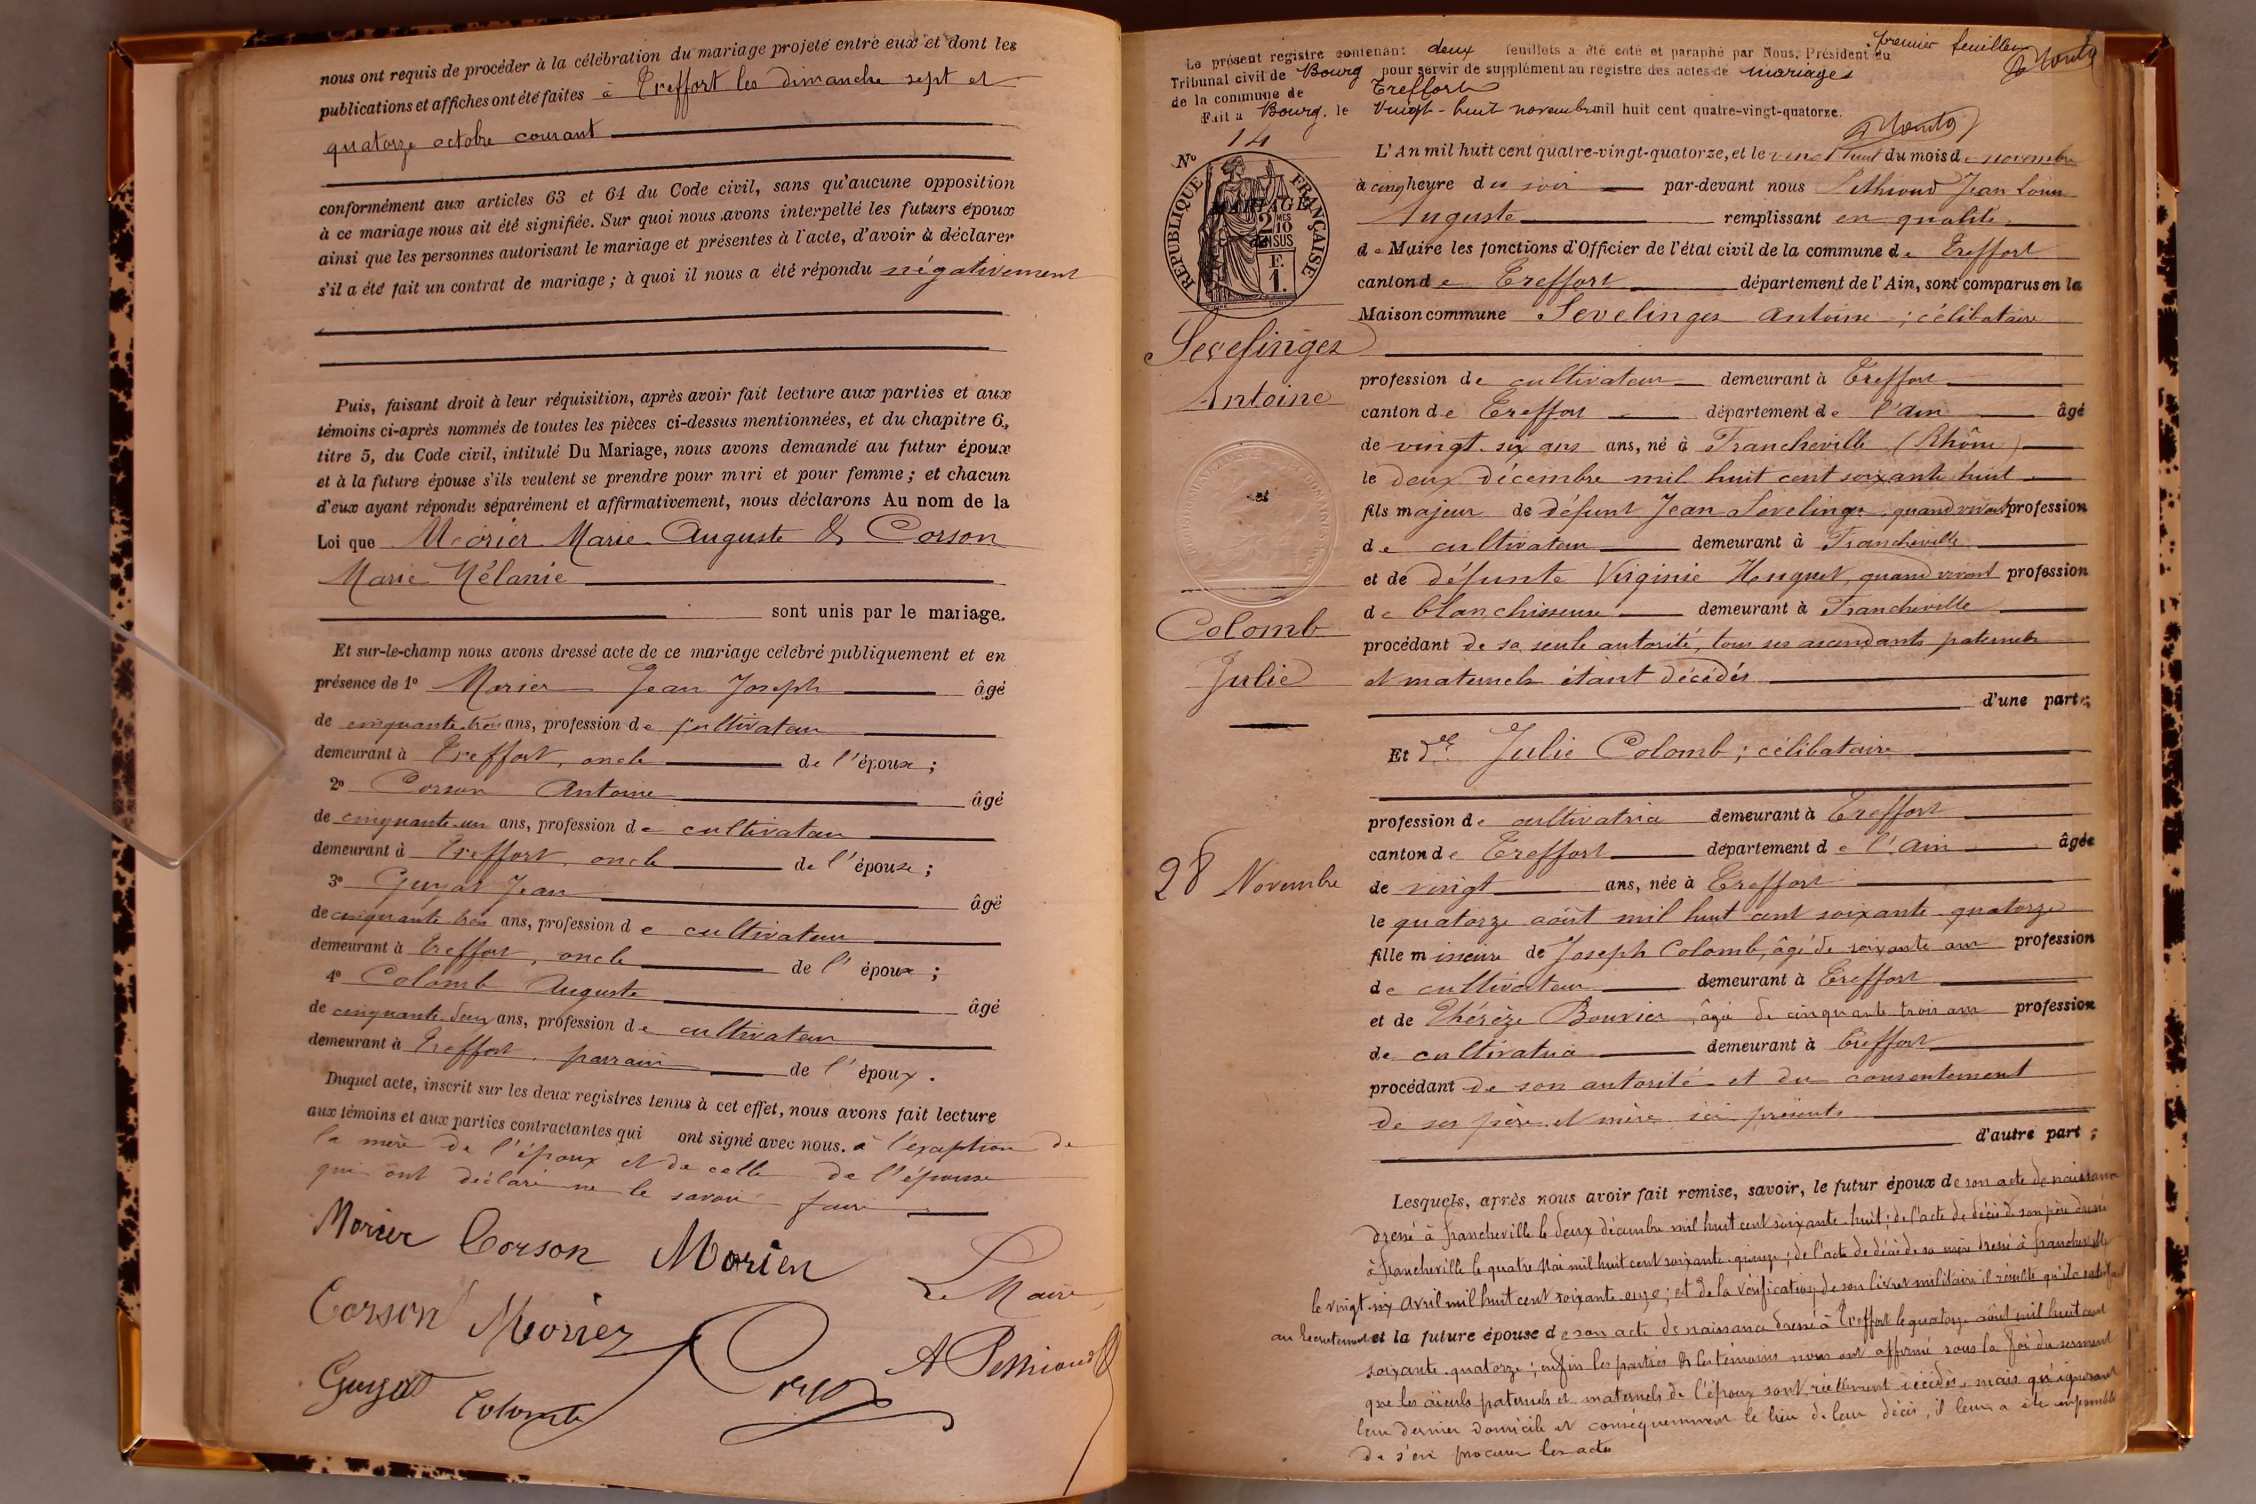 nous ont requis de procéder à la célébration du mariage projeté entre eux et dont les
publications et affiches ont été faites à Treffort les dimanche sept et
quatorze octobre courant
conformément aux articles 63 et 64 du Code civil, sans qu'aucune opposition
à ce mariage nous ait été signifiée. Sur quoi nous avons interpellé les futurs époux
ainsi que les personnes autorisant le mariage et présentes à l'acte, d'avoir à déclarer
s'il a été fait un contrat de mariage ; à quoi il nous a été répondu négativement
Puis, faisant droit à leur réquisition, après avoir fait lecture aux parties et aux
témoins ci-après nommés de toutes les pièces ci-dessus mentionnées, et du chapitre 6,
titre 5, du Code civil, intitulé Du Mariage, nous avons demandé au futur époux
et à la future épouse s'ils veulent se prendre pour mari et pour femme ; et chacun
d'eux ayant répondu séparément et affirmativement, nous déclarons Au nom de la
Loi que Morier Marie Auguste & Corson
Marie Mélanie
sont unis par le mariage.
Et sur-le-champ nous avons dressé acte de ce mariage célébré publiquement et en
présence de 1º Morier Jean Joseph âgé
de cinquante trois ans, profession de cultivateur
demeurant à Treffort, oncle de l'époux ;
2º Corson Antoine âgé
de cinquante un ans, profession de cultivateur
demeurant à Treffort, oncle de l'épouse ;
3º Guyat Jean âgé
de cinquante trois ans, profession de cultivateur
demeurant à Treffort, oncle de l'époux ;
4º Colomb Auguste âgé
de cinquante deux ans, profession de cultivateur
demeurant à Treffort, parrain de l'époux.
Duquel acte, inscrit sur les deux registres tenus à cet effet, nous avons fait lecture
aux témoins et aux parties contractantes qui ont signé avec nous. à l'exception de
la mère de l'époux et de celle de l'épouse
qui ont déclaré ne le savoir faire
Morier Corson Morier
Le Maire
Corson Morier
A Pethioud
Guyat Colomb
premier feuillet
Le présent registre contenant deux feuillets a été coté et paraphé par Nous, Président du
Tribunal civil de Bourg pour servir de supplément au registre des actes de mariages
de la commune de Treffort
Fait à Bourg, le vingt-huit novembre mil huit cent quatre-vingt-quatorze.
Nº 14
REPUBLIQUE FRANÇAISE
2/10 EN SUS
F. 1.
L'An mil huit cent quatre-vingt-quatorze, et le vingt huit du mois de novembre
à cinq heure du soir par-devant nous Pethioud Jean Louis
Auguste remplissant en qualité
de Maire les fonctions d'Officier de l'état civil de la commune de Treffort
canton de Treffort département de l'Ain, sont comparus en la
Maison commune Sevelinges Antoine ; célibataire
Sevelinges
Antoine
et
Colomb
Julie
28 Novembre
profession de cultivateur demeurant à Treffort
canton de Treffort département de l'Ain âgé
de vingt-six ans ans, né à Francheville (Rhône)
le deux décembre mil huit cent soixante huit
fils majeur de défunt Jean Sevelinges, quand vivait profession
de cultivateur demeurant à Francheville
et de défunte Virginie Huguet, quand vivait profession
de blanchisseuse demeurant à Francheville
procédant de sa seule autorité, tous ses ascendants paternels
et maternels étant décédés
d'une part ;
Et Dlle Julie Colomb ; célibataire
profession de cultivatrice demeurant à Treffort
canton de Treffort département de l'Ain âgée
de vingt ans, née à Treffort
le quatorze août mil huit cent soixante-quatorze
fille mineure de Joseph Colomb, âgé de soixante ans profession
de cultivateur demeurant à Treffort
et de Thérèze Bouvier, âgée de cinquante trois ans profession
de cultivatrice demeurant à Treffort
procédant de son autorité et du consentement
de ses père et mère ici présents
d'autre part ;
Lesquels, après nous avoir fait remise, savoir, le futur époux de son acte de naissance
dressé à Francheville le deux décembre mil huit cent soixante-huit ; de l'acte de décès de son père dressé
à Francheville le quatre Mai mil huit cent soixante-quinze ; de l'acte de décès de sa mère dressé à Francheville
le vingt-six Avril mil huit cent soixante-onze ; et de la vérification de son livret militaire il résulte qu'il a satisfait
au Recrutement et la future épouse de son acte de naissance dressé à Treffort le quatorze août mil huit cent
soixante-quatorze ; enfin les parties & les témoins nous ont affirmé sous la foi du serment
que les aïeuls paternels et maternels de l'époux sont réellement décédés, mais qu'ignorant
leur dernier domicile et conséquemment le lieu de leur décès, il leur a été impossible
de s'en procurer les actes